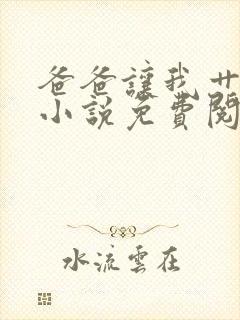 爸爸讓我廾
小說免費閱
水流雲在